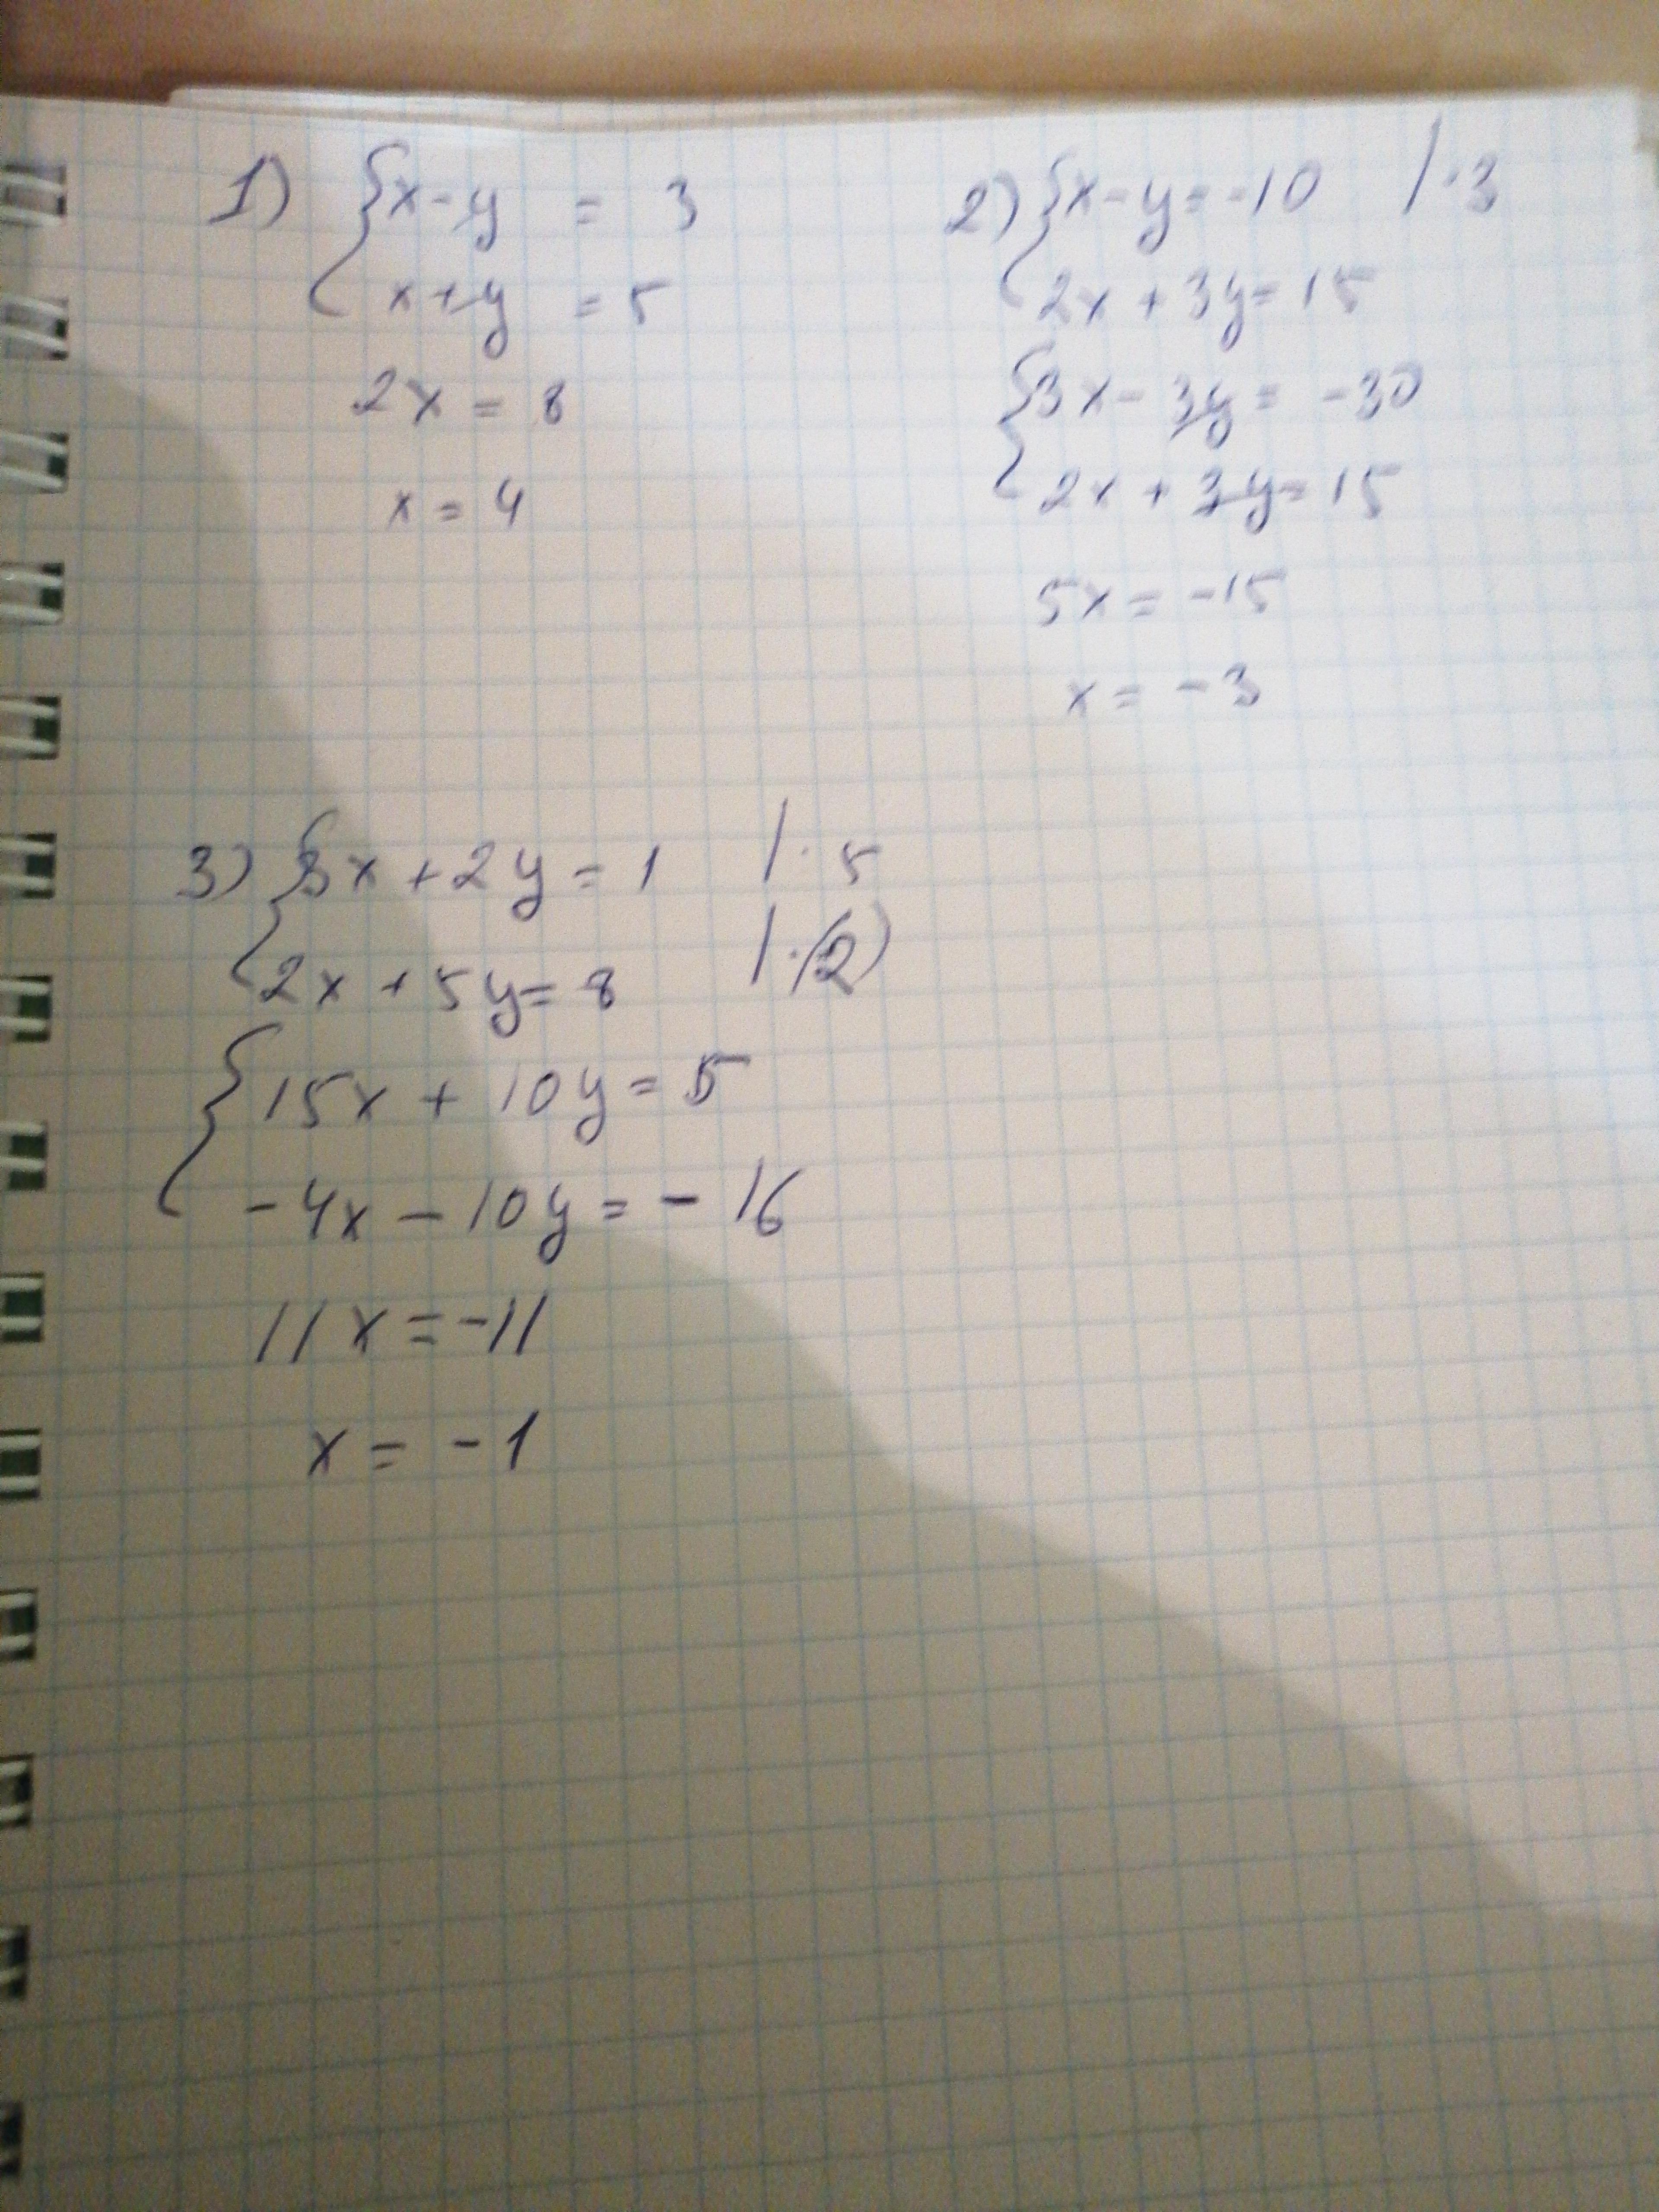 1) {x-y = 3
x+y = 5
2x = 8
x = 4
2) {x-y=-10 /·3
2x+3y=15
{3x-3y=-30
2x+3y=15
5x=-15
x=-3
3) {3x+2y=1 /·5
2x+5y=8 /·(-2)
{15x+10y=5
-4x-10y=-16
11x=-11
x=-1